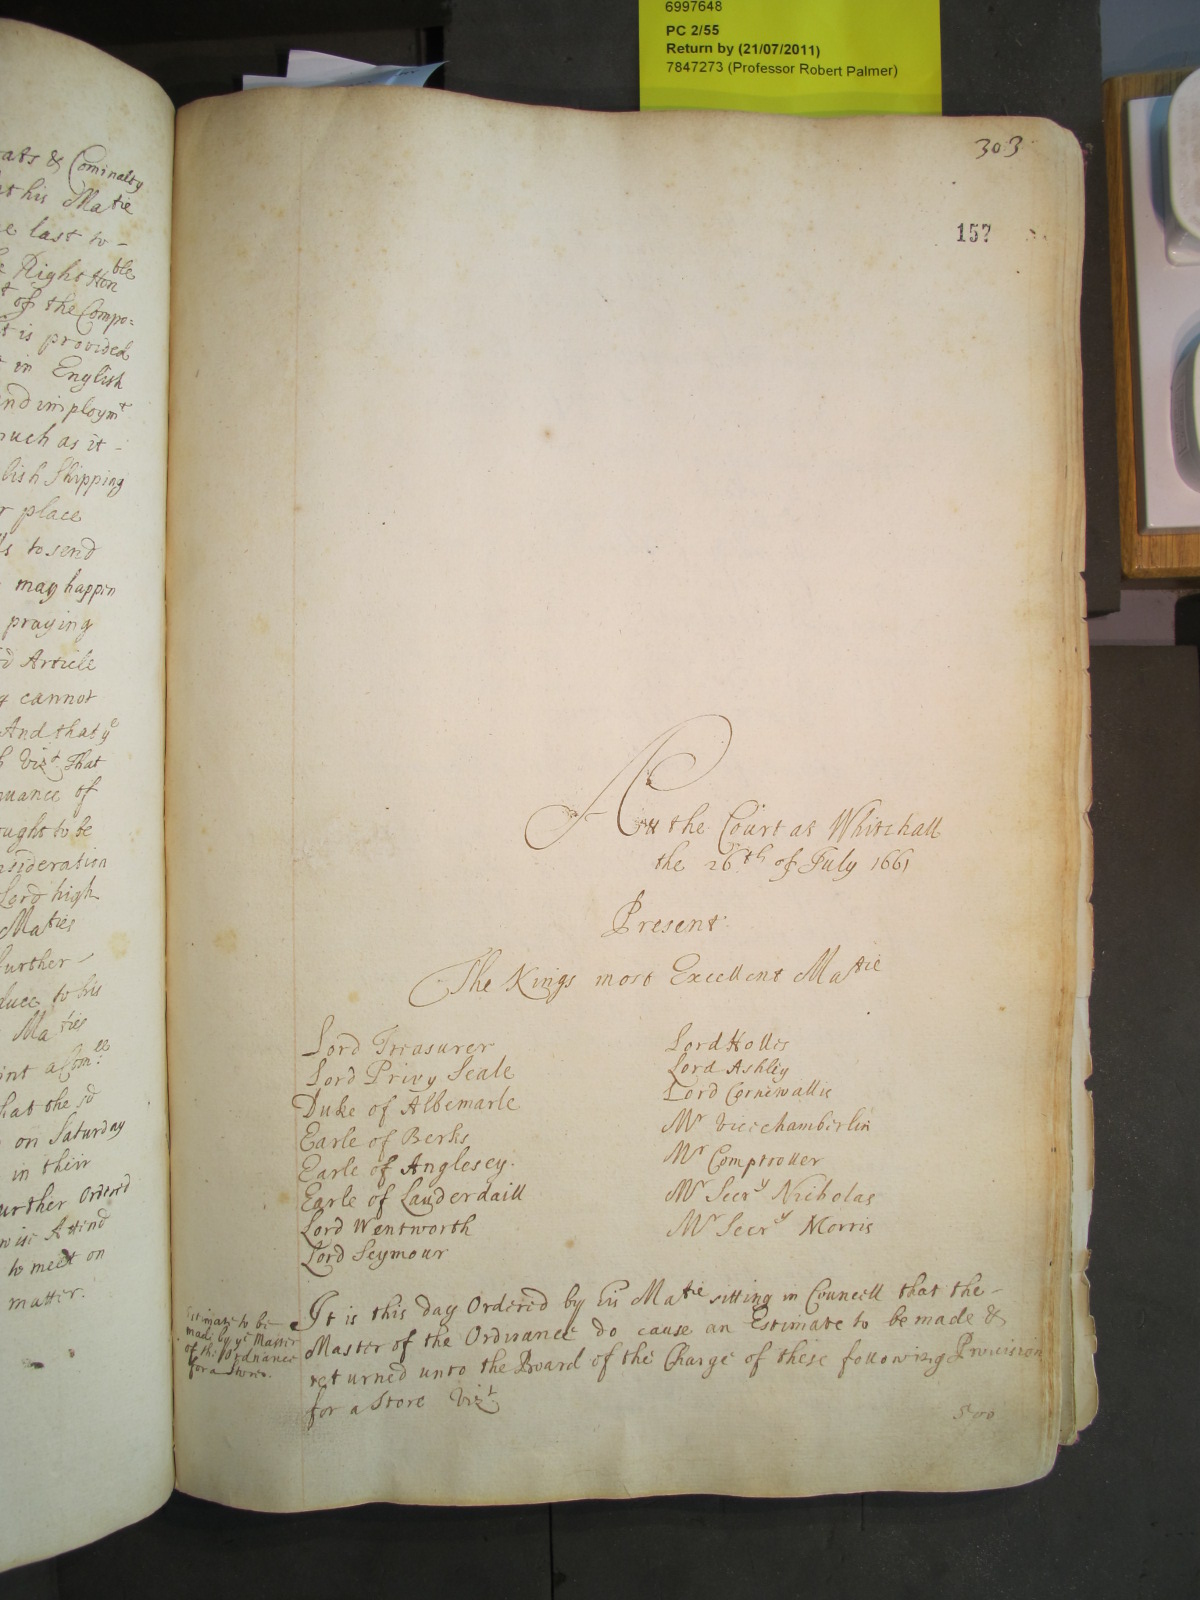 6997648
PC 2/55
Return by (21/07/2011)
7847273 (Professor Robert Palmer)
ats & Cominalty
his Matie
last to -
Right Honble
of the Compo=
t is provided
in English
nd imploymt
much as it -
lish Shipping
r place
to send
may happin
praying
Article
cannot
And that ye
Vizt That
nuance of
ought to be
nsideration
Lord high
Maties
further -
duce to his
Maties
int a Comee
hat the sd
on Saturday
in their
urther Ordered
wise Attend
to meet on
matter.
303
157
At the Court at Whitehall
the 26th of July 1661
Present
The Kings most Excellent Matie
Lord Treasurer
Lord Privy Seale
Duke of Albemarle
Earle of Berks
Earle of Anglesey.
Earle of Lauderdaill
Lord Wentworth
Lord Seymour
Lord Hollis
Lord Ashley
Lord Cornwallis
Mr Vicechamberlin
Mr Comptroller
Mr Secry Nicholas
Mr Secry Morris
Estimate to be
made by ye Master
of the Ordnance
for a Store.
It is this day Ordered by his Matie sitting in Councell that the -
Master of the Ordnance do cause an Estimate to be made &
returned unto the Board of the Charge of these following Provision
for a Store Vizt
500